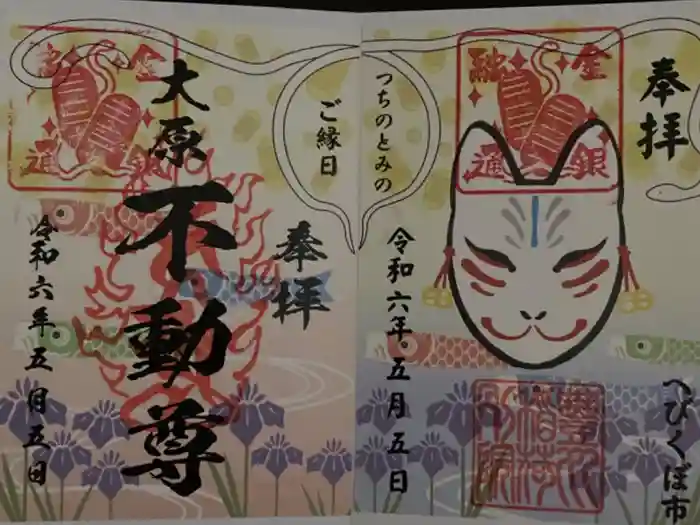 奉拝
へびくぼ市
令和六年五月五日
つちのとみの
ご縁日
奉拝
大原不動尊
令和六年五月五日
金銀融通
金銀融通